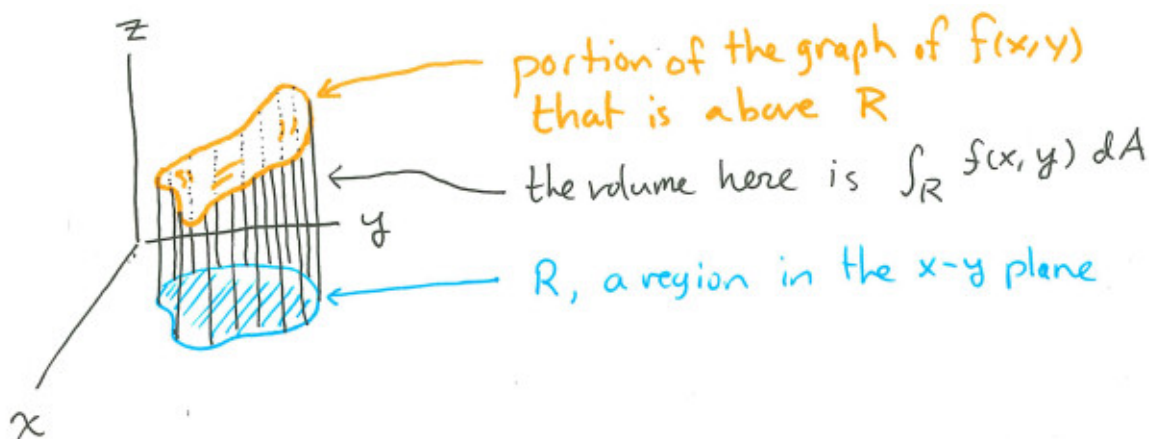 z
portion of the graph of f(x,y)
that is above R
the volume here is ∫_R f(x, y) dA
y
R, a region in the x-y plane
x